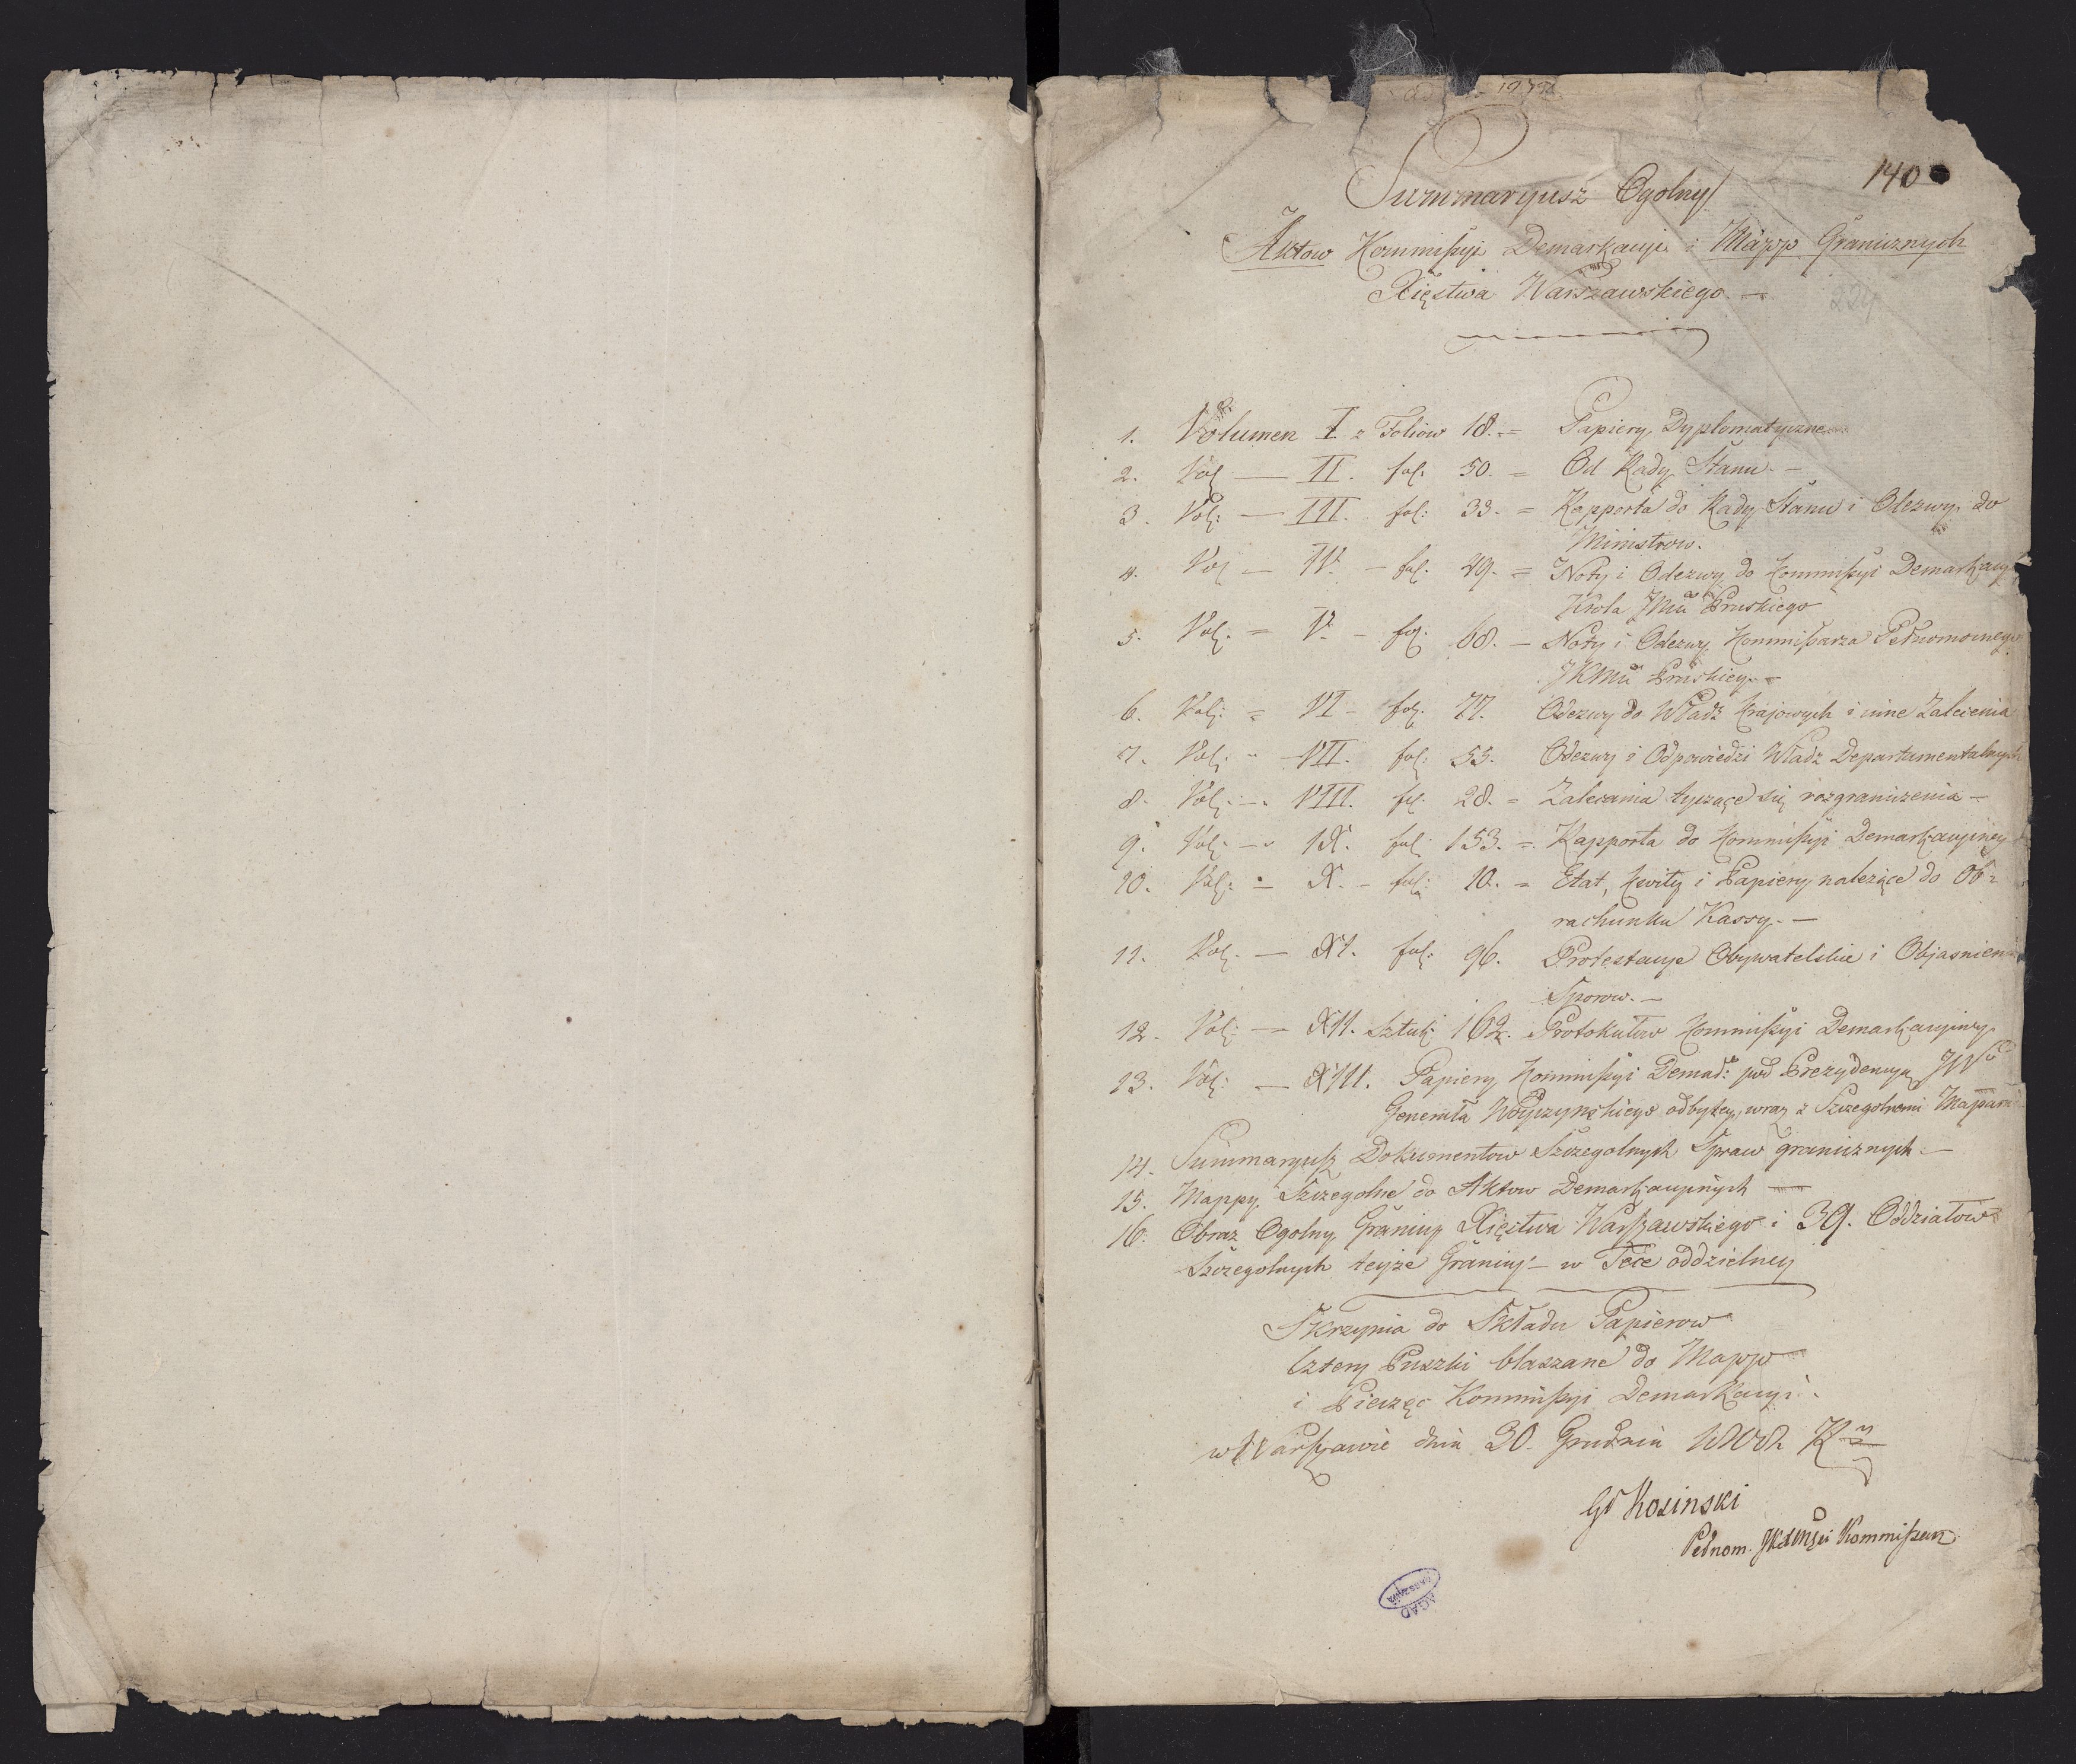 140
Summaryusz Ogolny
Aktow Kommissyi Demarkacyi i Mapp Granicznych
Xięstwa Warszawskiego. —
224
1. Volumen I z Foliow 18. = Papiery Dyplomatyczne
2. Vol: — II. fol: 50. = Od Rady Stanu. —
3. Vol: — III. fol: 33. = Rapporta do Rady Stanu i Odezwy do
Ministrow.
4. Vol — IV. — fol. 49. = Noty i Odezwy do Kommissyi Demarkacyi
Krola JMci Pruskiego
5. Vol: = V. — fol: 68. — Noty i Odezwy Kommissarza Pełnomocnego
JKMci Pruskiey. —
6. Vol: = VI — fol. 77. Odezwy do Władz Krajowych i inne Zalecenia
7. Vol: — VII. fol: 53. Odezwy i Odpowiedzi Władz Departamentalnych
8. Vol: — VIII. fol. 28. = Zalecenia tyczące się rozgraniczenia —
9. Vol: — IX. fol: 153. = Rapporta do Kommissyi Demarkacyiney
10. Vol: = X. — fol: 10. = Etat, Kwity i Papiery należące do Ob=
rachunku Kassy. —
11. Vol: — XI. fol: 96. Protestacye Obywatelskie i Objasnienia
Sporow. —
12. Vol: — XII. Sztuk 162. Protokułow Kommissyi Demarkacyiney
13. Vol: — XIII. Papiery Kommissyi Demar: pod Prezydencyą JW
Generała Woyczynskiego odbytey, wraz z Szczegolnemi Mapami
14. Summaryusz Dokumentow Szczegolnych Spraw granicznych —
15. Mappy Szczegolne do Aktow Demarkacyinych —
16. Obraz Ogolny Granicy Xięstwa Warszawskiego i 39. Oddziałow
Szczegolnych teyże Granicy — w Tece oddzielney
Skrzynia do Składu Papierow
Cztery Puszki blaszane do Mapp
i Pieczęc Kommissyi Demarkacyi.
w Warszawie dnia 30. Grudnia 1808. R
Gł Kosinski
Pełnom. JKMści Kommissarz
AGAD
WARSZAWA